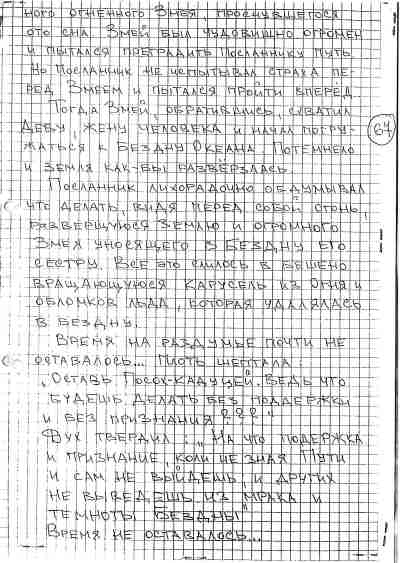 ного огненного Змея, проснувшегося
ото сна. Змей был чудовищно огромен
и пытался преградить Посланнику путь
Но Посланник не испытывал страха пе-
ред Змеем и пытался пройти вперед...
Тогда Змей, обратившись, схватил
Деву, жену человека и начал погру-
жаться к Бездну Океана. Потемнело
67
и Земля как-бы разверзлась.
Посланник лихорадочно обдумывал
что делать, видя перед собой огонь,
разверщуюся Землю и огромного
Змея уносящего в Бездну его
сестру. Все это слилось в бешено
вращающуюся карусель из огня и
обломков льда, которая удалялась
в бездну.
Время на раздумье почти не
оставалось... Плоть шептала
„Оставь Посох-Кадуцей. Ведь что
будешь делать без поддержки
и без признания???"
Дух твердил: „На что подержка
и признание, коли не зная Пути
и сам не выйдешь, и других
не выведешь из мрака и
темноты Бездны"
Время не оставалось...